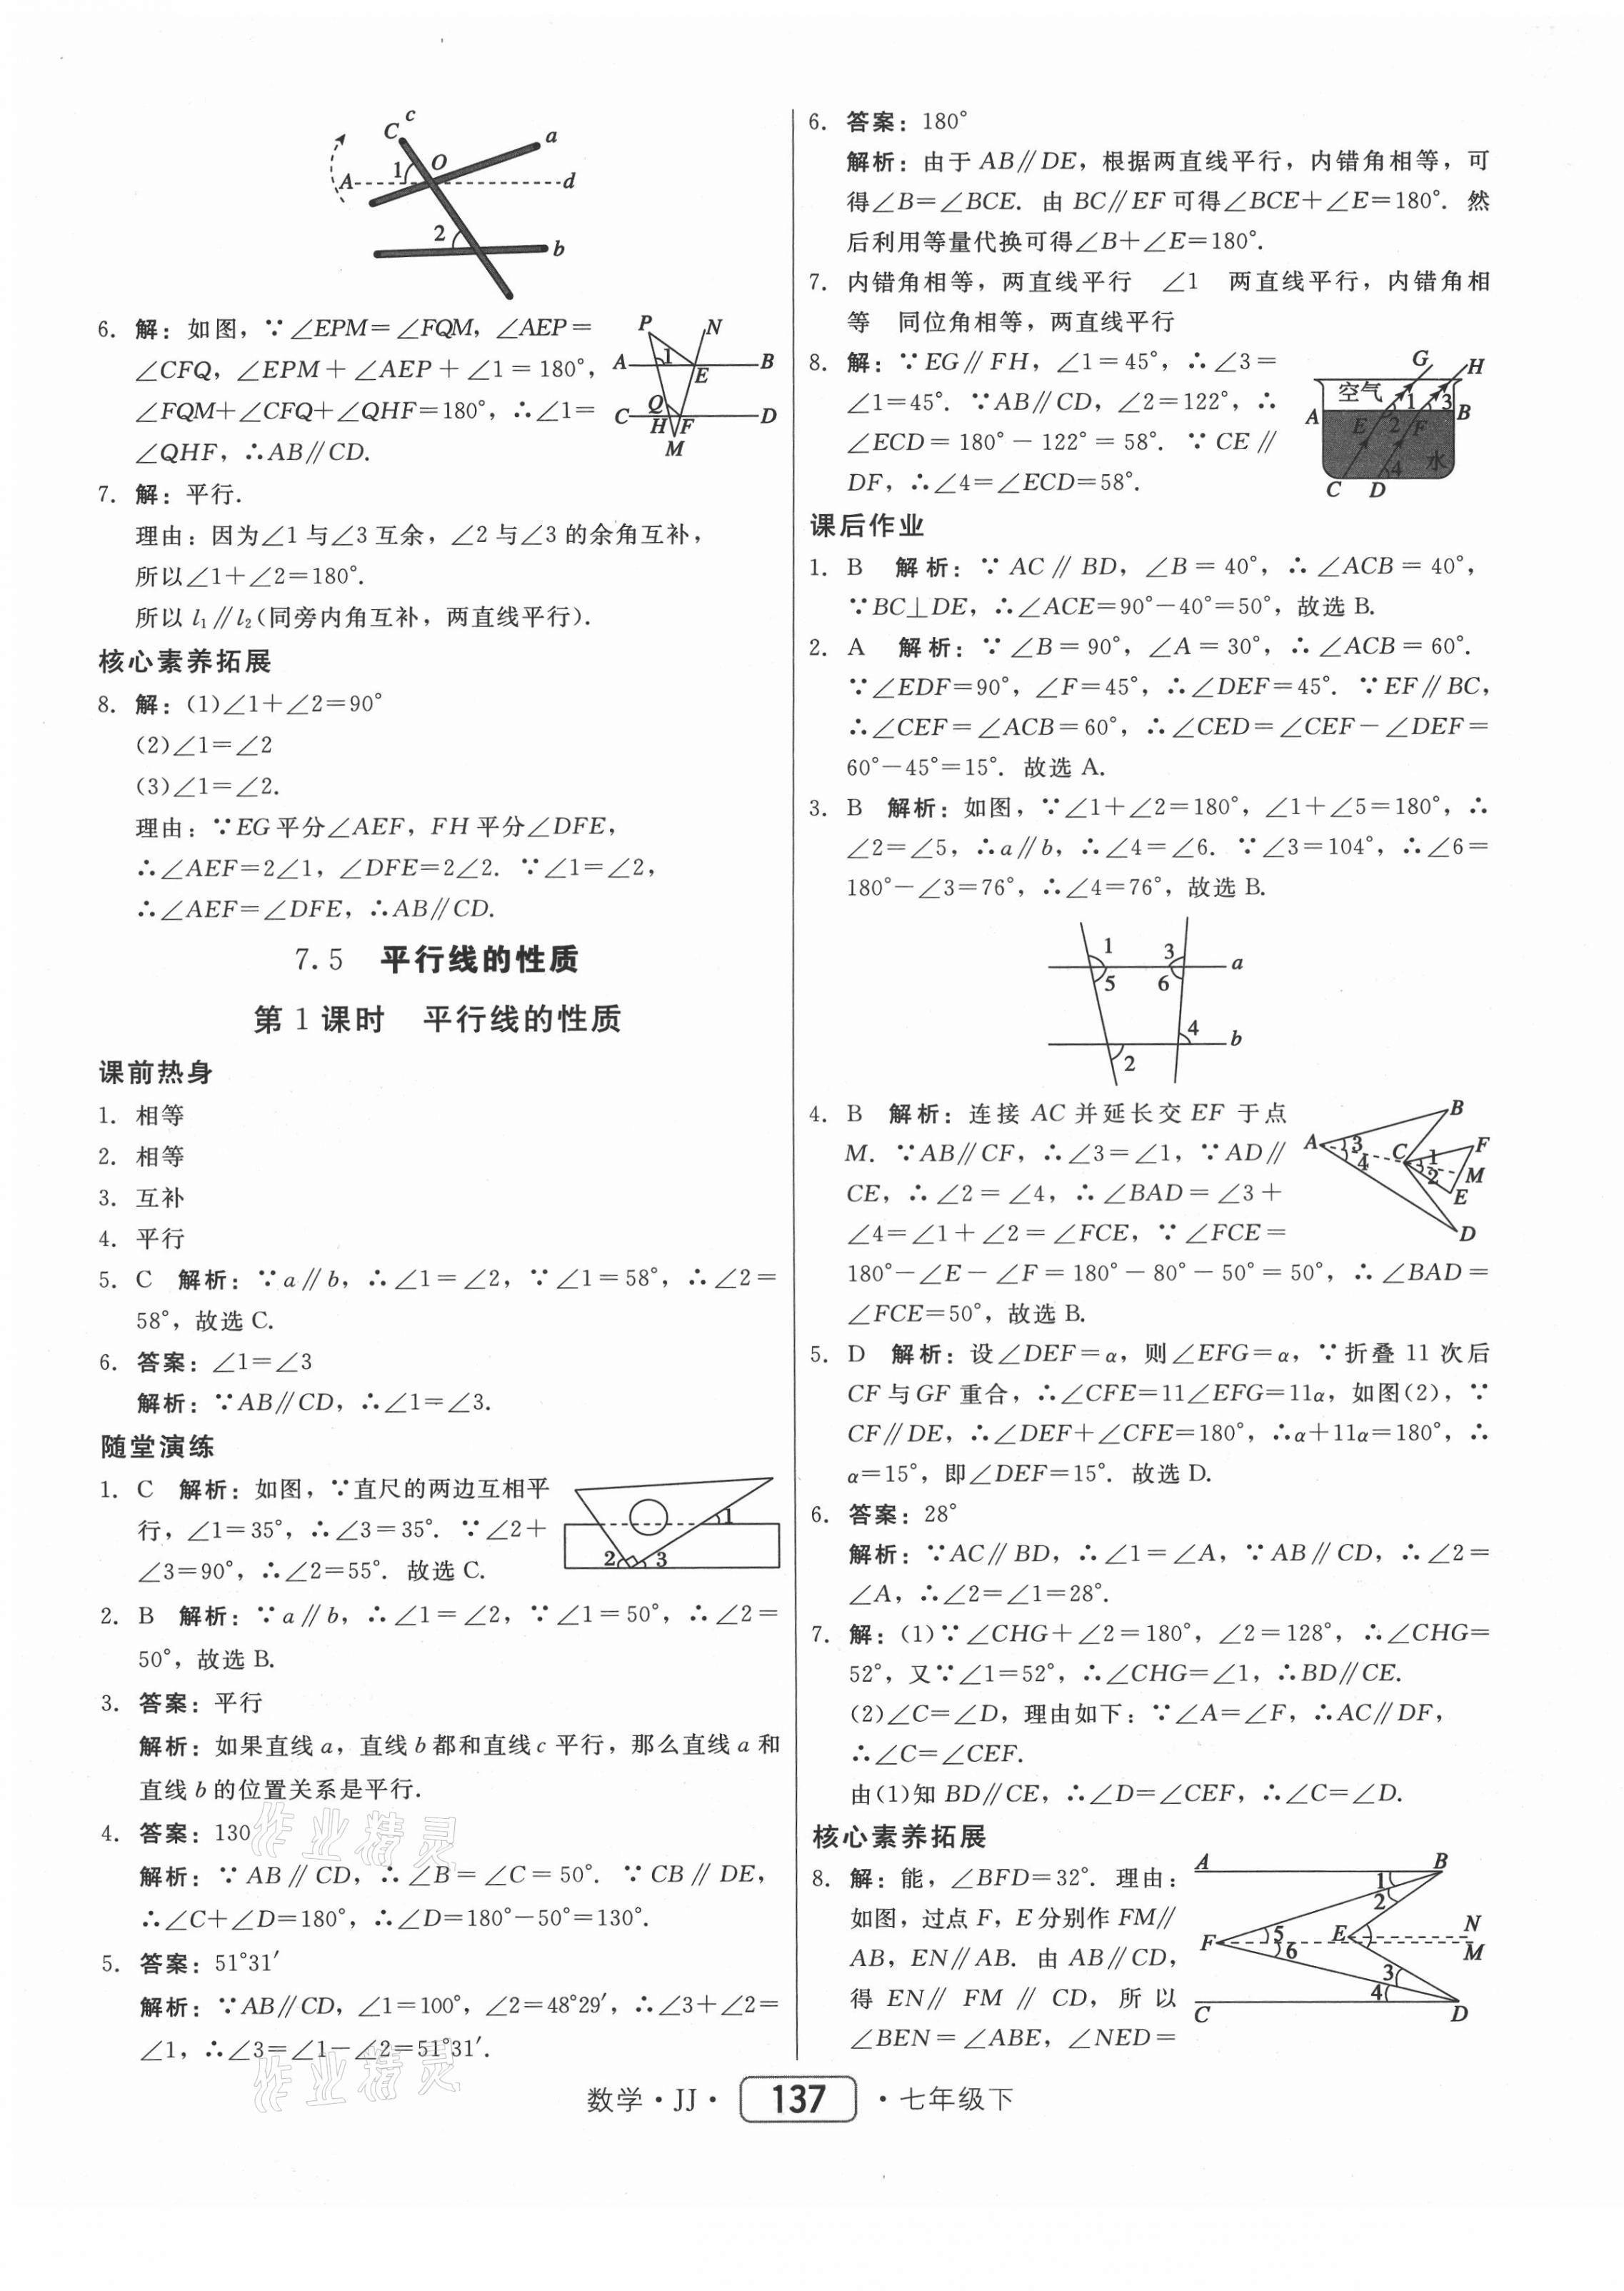 C
c
a
1
O
A
d
2
b
6. 解：如图，∵∠EPM=∠FQM，∠AEP=
∠CFQ，∠EPM+∠AEP+∠1=180°，
∠FQM+∠CFQ+∠QHF=180°，∴∠1=
∠QHF，∴AB∥CD.
P N
A 1 B
E
Q
C D
H F
M
7. 解：平行.
理由：因为∠1与∠3互余，∠2与∠3的余角互补，
所以∠1+∠2=180°.
所以 l₁∥l₂(同旁内角互补，两直线平行).
核心素养拓展
8. 解：(1)∠1+∠2=90°
(2)∠1=∠2
(3)∠1=∠2.
理由：∵EG平分∠AEF，FH平分∠DFE，
∴∠AEF=2∠1，∠DFE=2∠2. ∵∠1=∠2，
∴∠AEF=∠DFE，∴AB∥CD.
7.5 平行线的性质
第1课时 平行线的性质
课前热身
1. 相等
2. 相等
3. 互补
4. 平行
5. C 解析：∵a∥b，∴∠1=∠2，∵∠1=58°，∴∠2=
58°，故选C.
6. 答案：∠1=∠3
解析：∵AB∥CD，∴∠1=∠3.
随堂演练
1. C 解析：如图，∵直尺的两边互相平
行，∠1=35°，∴∠3=35°. ∵∠2+
∠3=90°，∴∠2=55°. 故选C.
1
2 3
2. B 解析：∵a∥b，∴∠1=∠2，∵∠1=50°，∴∠2=
50°，故选B.
3. 答案：平行
解析：如果直线a，直线b都和直线c平行，那么直线a和
直线b的位置关系是平行.
4. 答案：130
解析：∵AB∥CD，∴∠B=∠C=50°. ∵CB∥DE，
∴∠C+∠D=180°，∴∠D=180°-50°=130°.
5. 答案：51°31′
解析：∵AB∥CD，∠1=100°，∠2=48°29′，∴∠3+∠2=
∠1，∴∠3=∠1-∠2=51°31′.
作业精灵
作业精灵
6. 答案：180°
解析：由于AB∥DE，根据两直线平行，内错角相等，可
得∠B=∠BCE. 由BC∥EF可得∠BCE+∠E=180°. 然
后利用等量代换可得∠B+∠E=180°.
7. 内错角相等，两直线平行 ∠1 两直线平行，内错角相
等 同位角相等，两直线平行
8. 解：∵EG∥FH，∠1=45°，∴∠3=
∠1=45°. ∵AB∥CD，∠2=122°，∴
∠ECD=180°-122°=58°. ∵CE∥
DF，∴∠4=∠ECD=58°.
G H
空气
A 1 3 B
E 2 F
4 水
C D
课后作业
1. B 解析：∵AC∥BD，∠B=40°，∴∠ACB=40°，
∵BC⊥DE，∴∠ACE=90°-40°=50°，故选B.
2. A 解析：∵∠B=90°，∠A=30°，∴∠ACB=60°.
∵∠EDF=90°，∠F=45°，∴∠DEF=45°. ∵EF∥BC，
∴∠CEF=∠ACB=60°，∴∠CED=∠CEF-∠DEF=
60°-45°=15°. 故选A.
3. B 解析：如图，∵∠1+∠2=180°，∠1+∠5=180°，∴
∠2=∠5，∴a∥b，∴∠4=∠6. ∵∠3=104°，∴∠6=
180°-∠3=76°，∴∠4=76°，故选B.
1 3 a
5 6
4 b
2
4. B 解析：连接AC并延长交EF于点
M. ∵AB∥CF，∴∠3=∠1，∵AD∥
CE，∴∠2=∠4，∴∠BAD=∠3+
∠4=∠1+∠2=∠FCE，∵∠FCE=
180°-∠E-∠F=180°-80°-50°=50°，∴∠BAD=
∠FCE=50°，故选B.
B
A 3 C 1 F
4 2 M
E
D
5. D 解析：设∠DEF=α，则∠EFG=α，∵折叠11次后
CF与GF重合，∴∠CFE=11∠EFG=11α，如图(2)，∵
CF∥DE，∴∠DEF+∠CFE=180°，∴α+11α=180°，∴
α=15°，即∠DEF=15°. 故选D.
6. 答案：28°
解析：∵AC∥BD，∴∠1=∠A，∵AB∥CD，∴∠2=
∠A，∴∠2=∠1=28°.
7. 解：(1)∵∠CHG+∠2=180°，∠2=128°，∴∠CHG=
52°，又∵∠1=52°，∴∠CHG=∠1，∴BD∥CE.
(2)∠C=∠D，理由如下：∵∠A=∠F，∴AC∥DF，
∴∠C=∠CEF.
由(1)知BD∥CE，∴∠D=∠CEF，∴∠C=∠D.
核心素养拓展
8. 解：能，∠BFD=32°. 理由：
如图，过点F，E分别作FM∥
AB，EN∥AB. 由AB∥CD，
得EN∥FM∥CD，所以
∠BEN=∠ABE，∠NED=
A B
1
2
F 5 E N
6 M
3
4
C D
数学·JJ· 137 ·七年级下